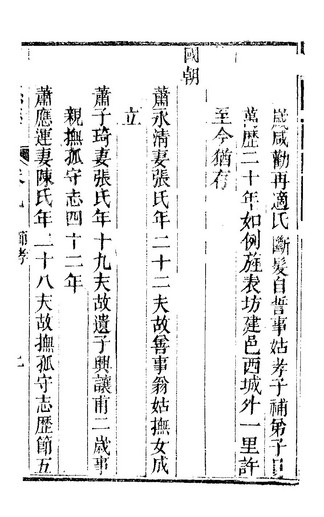 咸勸再適氏斷髮自誓事姑孝子補弟子員
萬歷二十年如例旌表坊建邑西城外一里許
至今猶存
國朝
蕭永清妻張氏年二十二夫故善事翁姑撫女成
立
蕭子琦妻張氏年十九夫故遺子興讓甫二歲事
親撫孤守志四十二年
蕭應運妻陳氏年二十八夫故撫孤守志歷節五
節孝